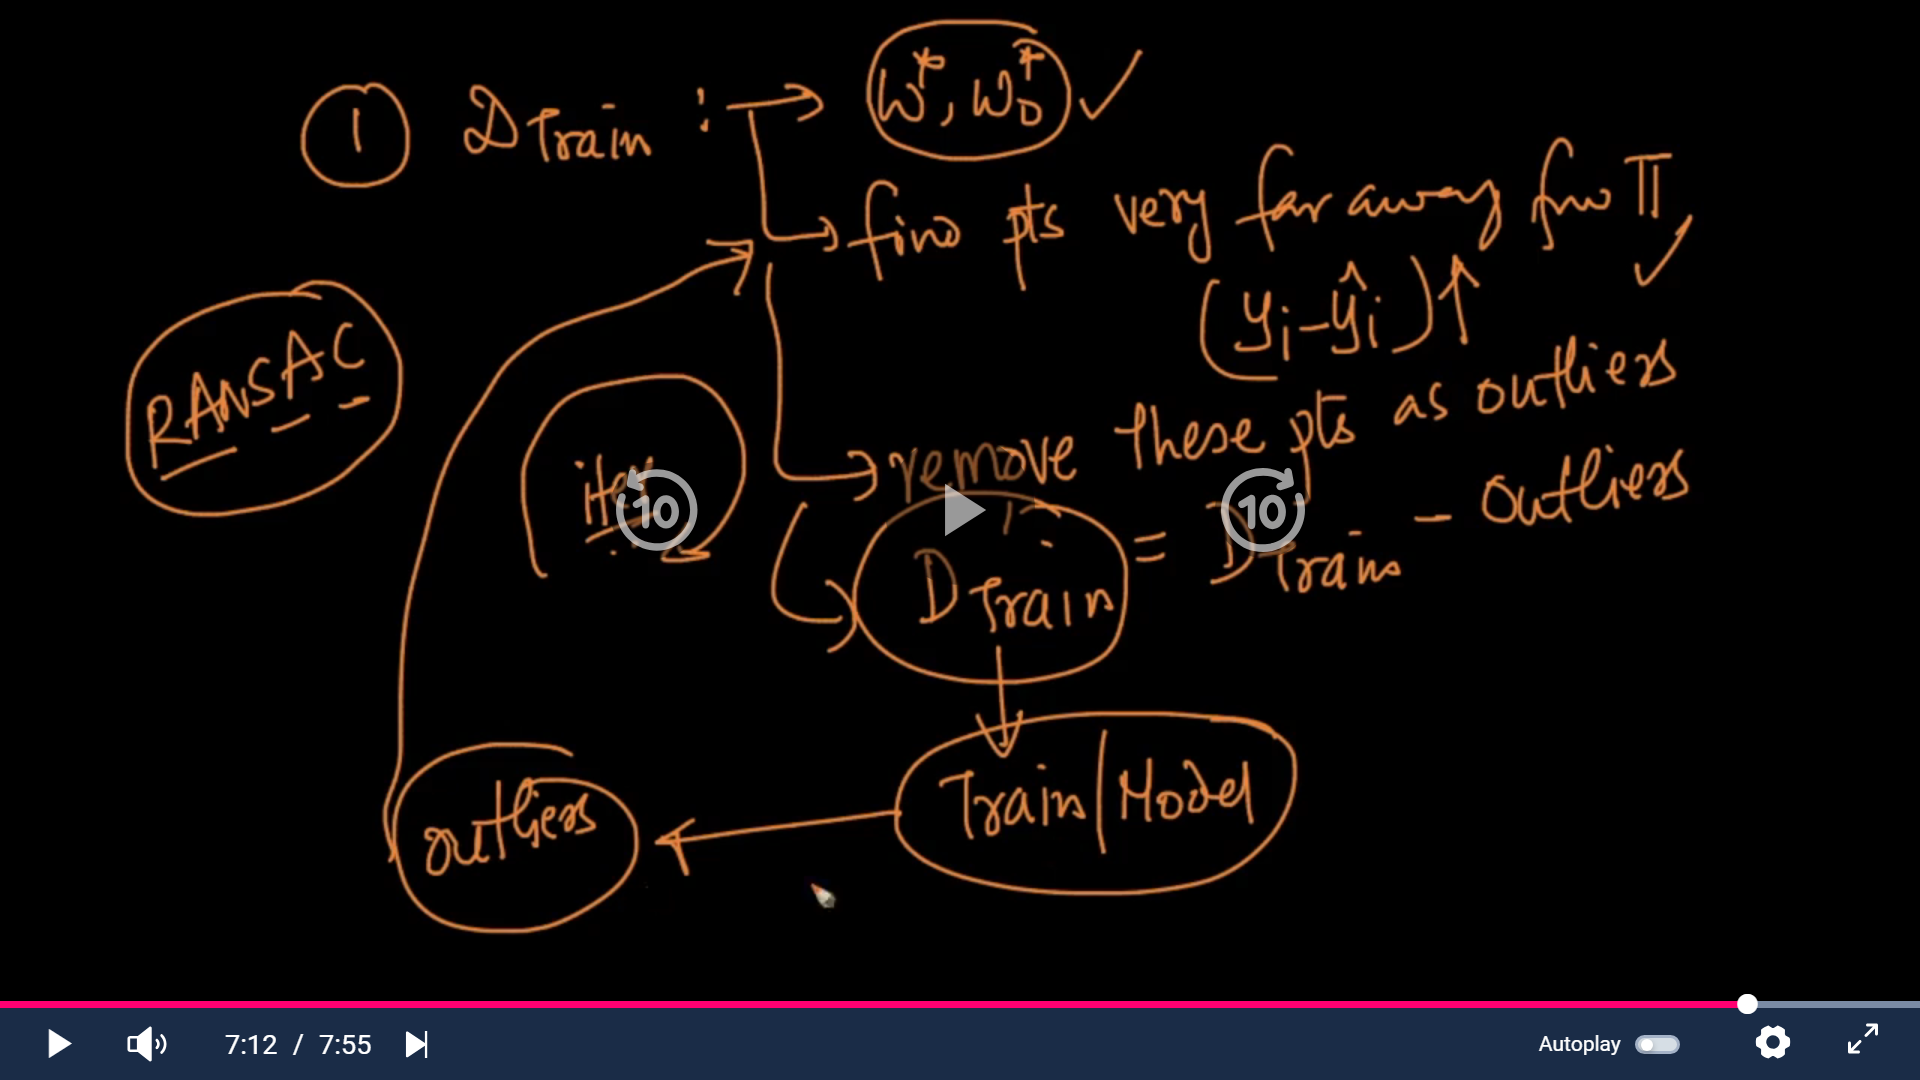 1 D Train : → w*, w0* ✓
find pts very far away from π ✓
(yi - ŷi) ↑
RANSAC
remove these pts as outliers
iter
10
10
D' Train = D Train - outliers
Train/Model
outliers
7:12 / 7:55
Autoplay